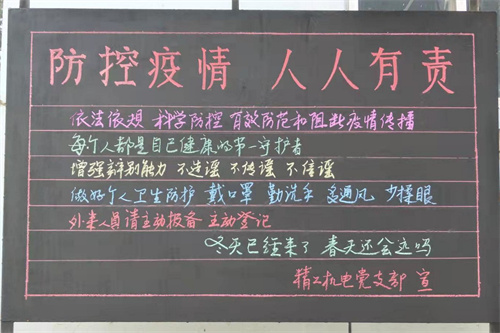 防控疫情 人人有责
依法依规 科学防控 有效防范和阻断疫情传播
每个人都是自己健康的第一守护者
增强辩别能力 不造谣 不传谣 不信谣
做好个人卫生防护 戴口罩 勤洗手 多通风 少揉眼
外来人员请主动报备 主动登记
冬天已经来了 春天还会远吗
精工机电党支部 宣